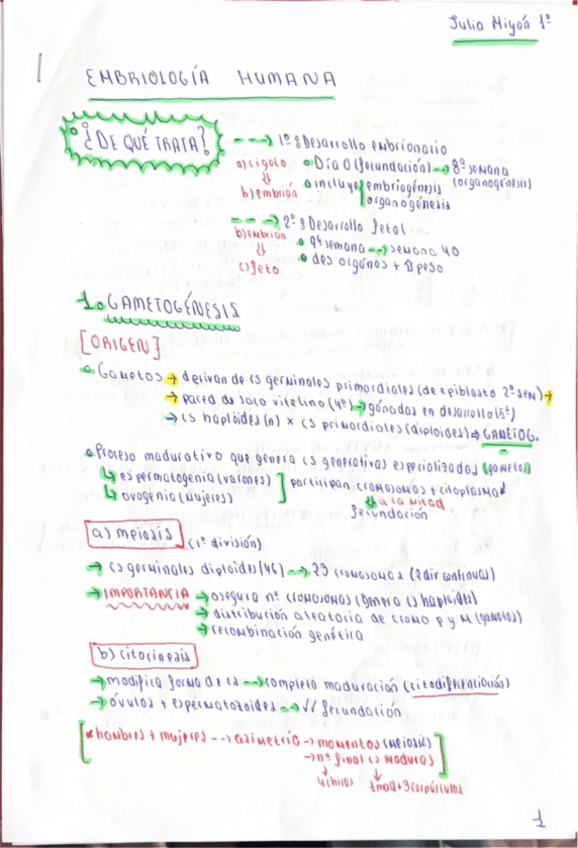 Julia Miyón 1º
EMBRIOLOGÍA HUMANA
¿DE QUÉ TRATA?
1º: Desarrollo embrionario
a) cigoto
Día 0 (fecundación) --> 8ª semana
(organogénesis)
b) embrión
incluye embriogénesis
organogénesis
2º: Desarrollo fetal
b) embrión
9ª semana --> semana 40
des órganos + ⇧ peso
c) feto
1. GAMETOGÉNESIS
[ORIGEN]
Gametos → derivan de cs germinales primordiales (de epiblasto 2ª SEM) →
→ pared de saco vitelino (4ª) → gónadas en desarrollo (5ª)
→ cs haploides (n) x cs primordiales (diploides) → GAMETOG.
Proceso madurativo que genera cs generativas especializadas (gametos)
↳ espermatogenia (varones)
participan cromosomas + citoplasma
↳ ovogenia (mujeres)
a la mitad
fecundación
a) meiosis (1ª división)
→ cs germinales diploides (46) --> 23 cromosomas (2 div continuas)
→ IMPORTANCIA → asegura nº cromosomas (genera cs haploides)
→ distribución aleatoria de cromo P y M (gametos)
→ recombinación genética
b) citocinesis
→ modifica forma de cs --> completa maduración (citodiferenciación)
→ óvulos + espermatozoides --> √√ fecundación
[* hombres + mujeres --> asimetría → momentos (MEIOSIS)
→ nº final cs MADURAS]
4 chicos
1 mad + 3 corpúsculos
1